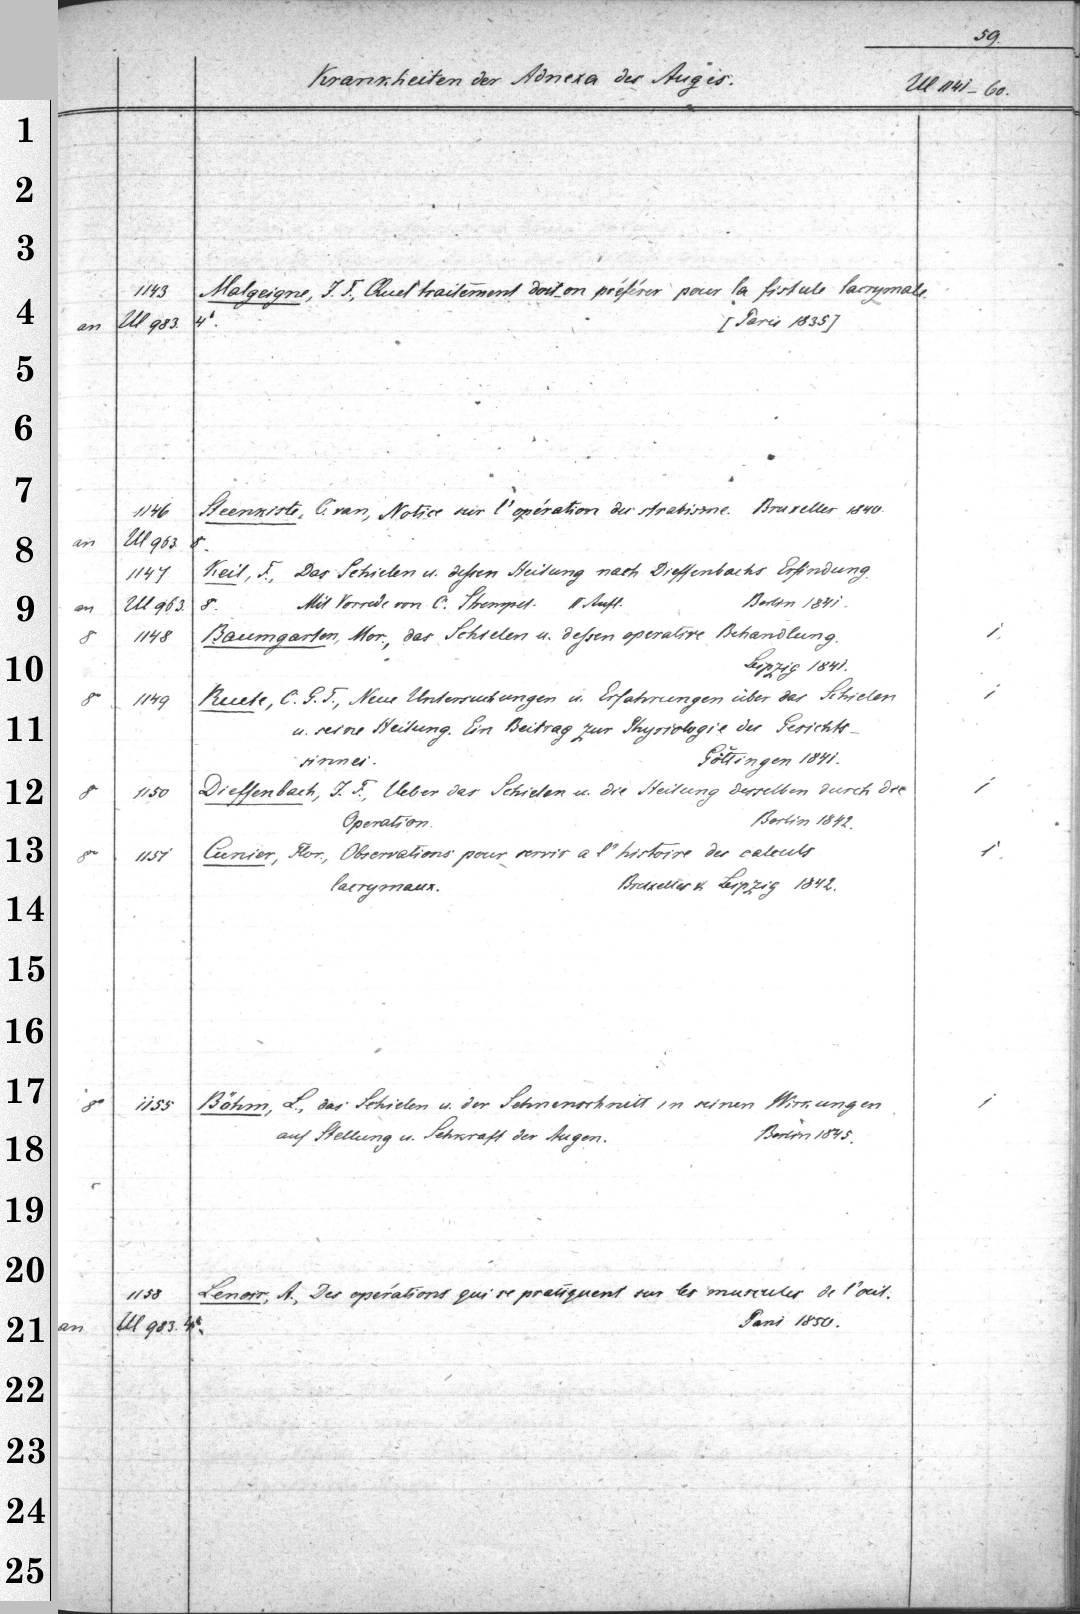 59.
Krankheiten der Adnexa des Auges. Ul 1141-60.
1
2
3
1143 Malgaigne, J. F., Quel traitement doit on préférer pour la fistule lacrymale.
4
an Ul 983. 4°. [Paris 1835]
5
6
7
1146 Steenkiste, C. van, Notice sur l'opération du strabisme. Bruxelles 1840.
8
an Ul 963. 8.
1147 Keil, F., Das Schielen u. dessen Heilung nach Dieffenbachs Erfindung.
9
an Ul 963. 8. Mit Vorrede von C. Strempel. II Aufl. Berlin 1841.
8 1148 Baumgarten, Mor., das Schielen u. dessen operative Behandlung. 1.
10
Leipzig 1841.
8° 1149 Ruete, C. G. T., Neue Untersuchungen u. Erfahrungen über das Schielen 1
11
u. seine Heilung. Ein Beitrag zur Physiologie des Gesichts-
sinnes. Göttingen 1841.
12
8 1150 Dieffenbach, J. F., Ueber das Schielen u. die Heilung desselben durch die 1
Operation. Berlin 1842.
13
8° 1151 Cunier, Flor., Observations pour servir a l'histoire des calculs 1.
lacrymaux. Bruxelles & Leipzig 1842.
14
15
16
17
8° 1155 Böhm, L., das Schielen u. der Sehnenschnitt in seinen Wirkungen 1
auf Stellung u. Sehkraft der Augen. Berlin 1845.
18
19
20
1158 Lenoir, A., Des opérations qui se pratiquent sur les muscules de l'oeil.
21
an Ul 983. 4°. Paris 1850.
22
23
24
25